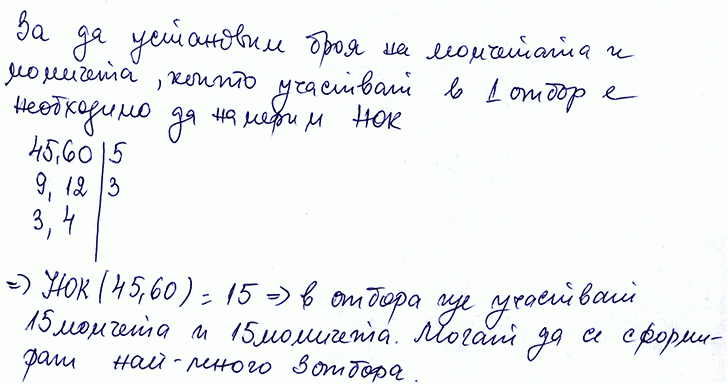 За да установим броя на момчетата и
момичета, които участват в 1 отбор е
необходимо да намерим НОК
45,60 | 5
9, 12 | 3
3, 4 |
=> НОК (45,60) = 15 => в отбора ще участват
15 момчета и 15 момичета. Могат да се сформи-
рат най-много 3 отбора.